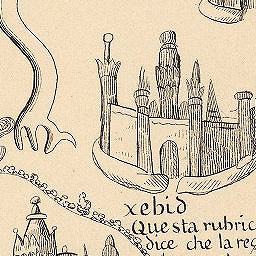 xebid
Questa rubric
dice che la reg